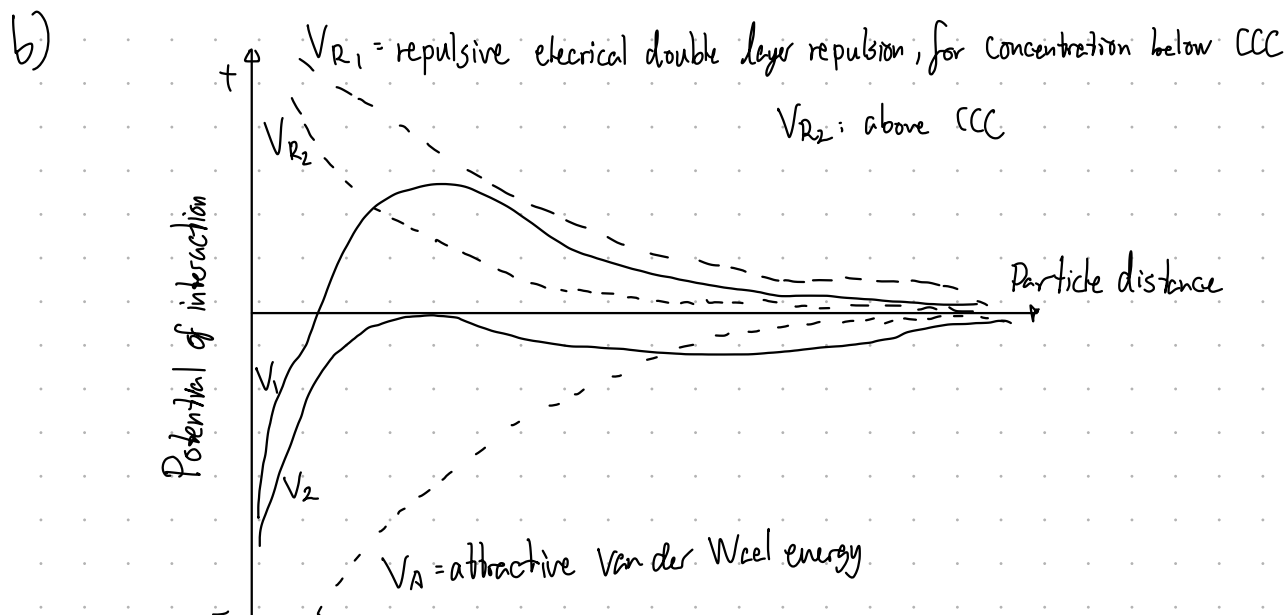 b)
V_R1 = repulsive elecrical double layer repulsion, for concentration below CCC
+
V_R2 : above CCC
V_R2
Potential of interaction
Particle distance
V_1
V_2
V_A = attractive Van der Wael energy
-